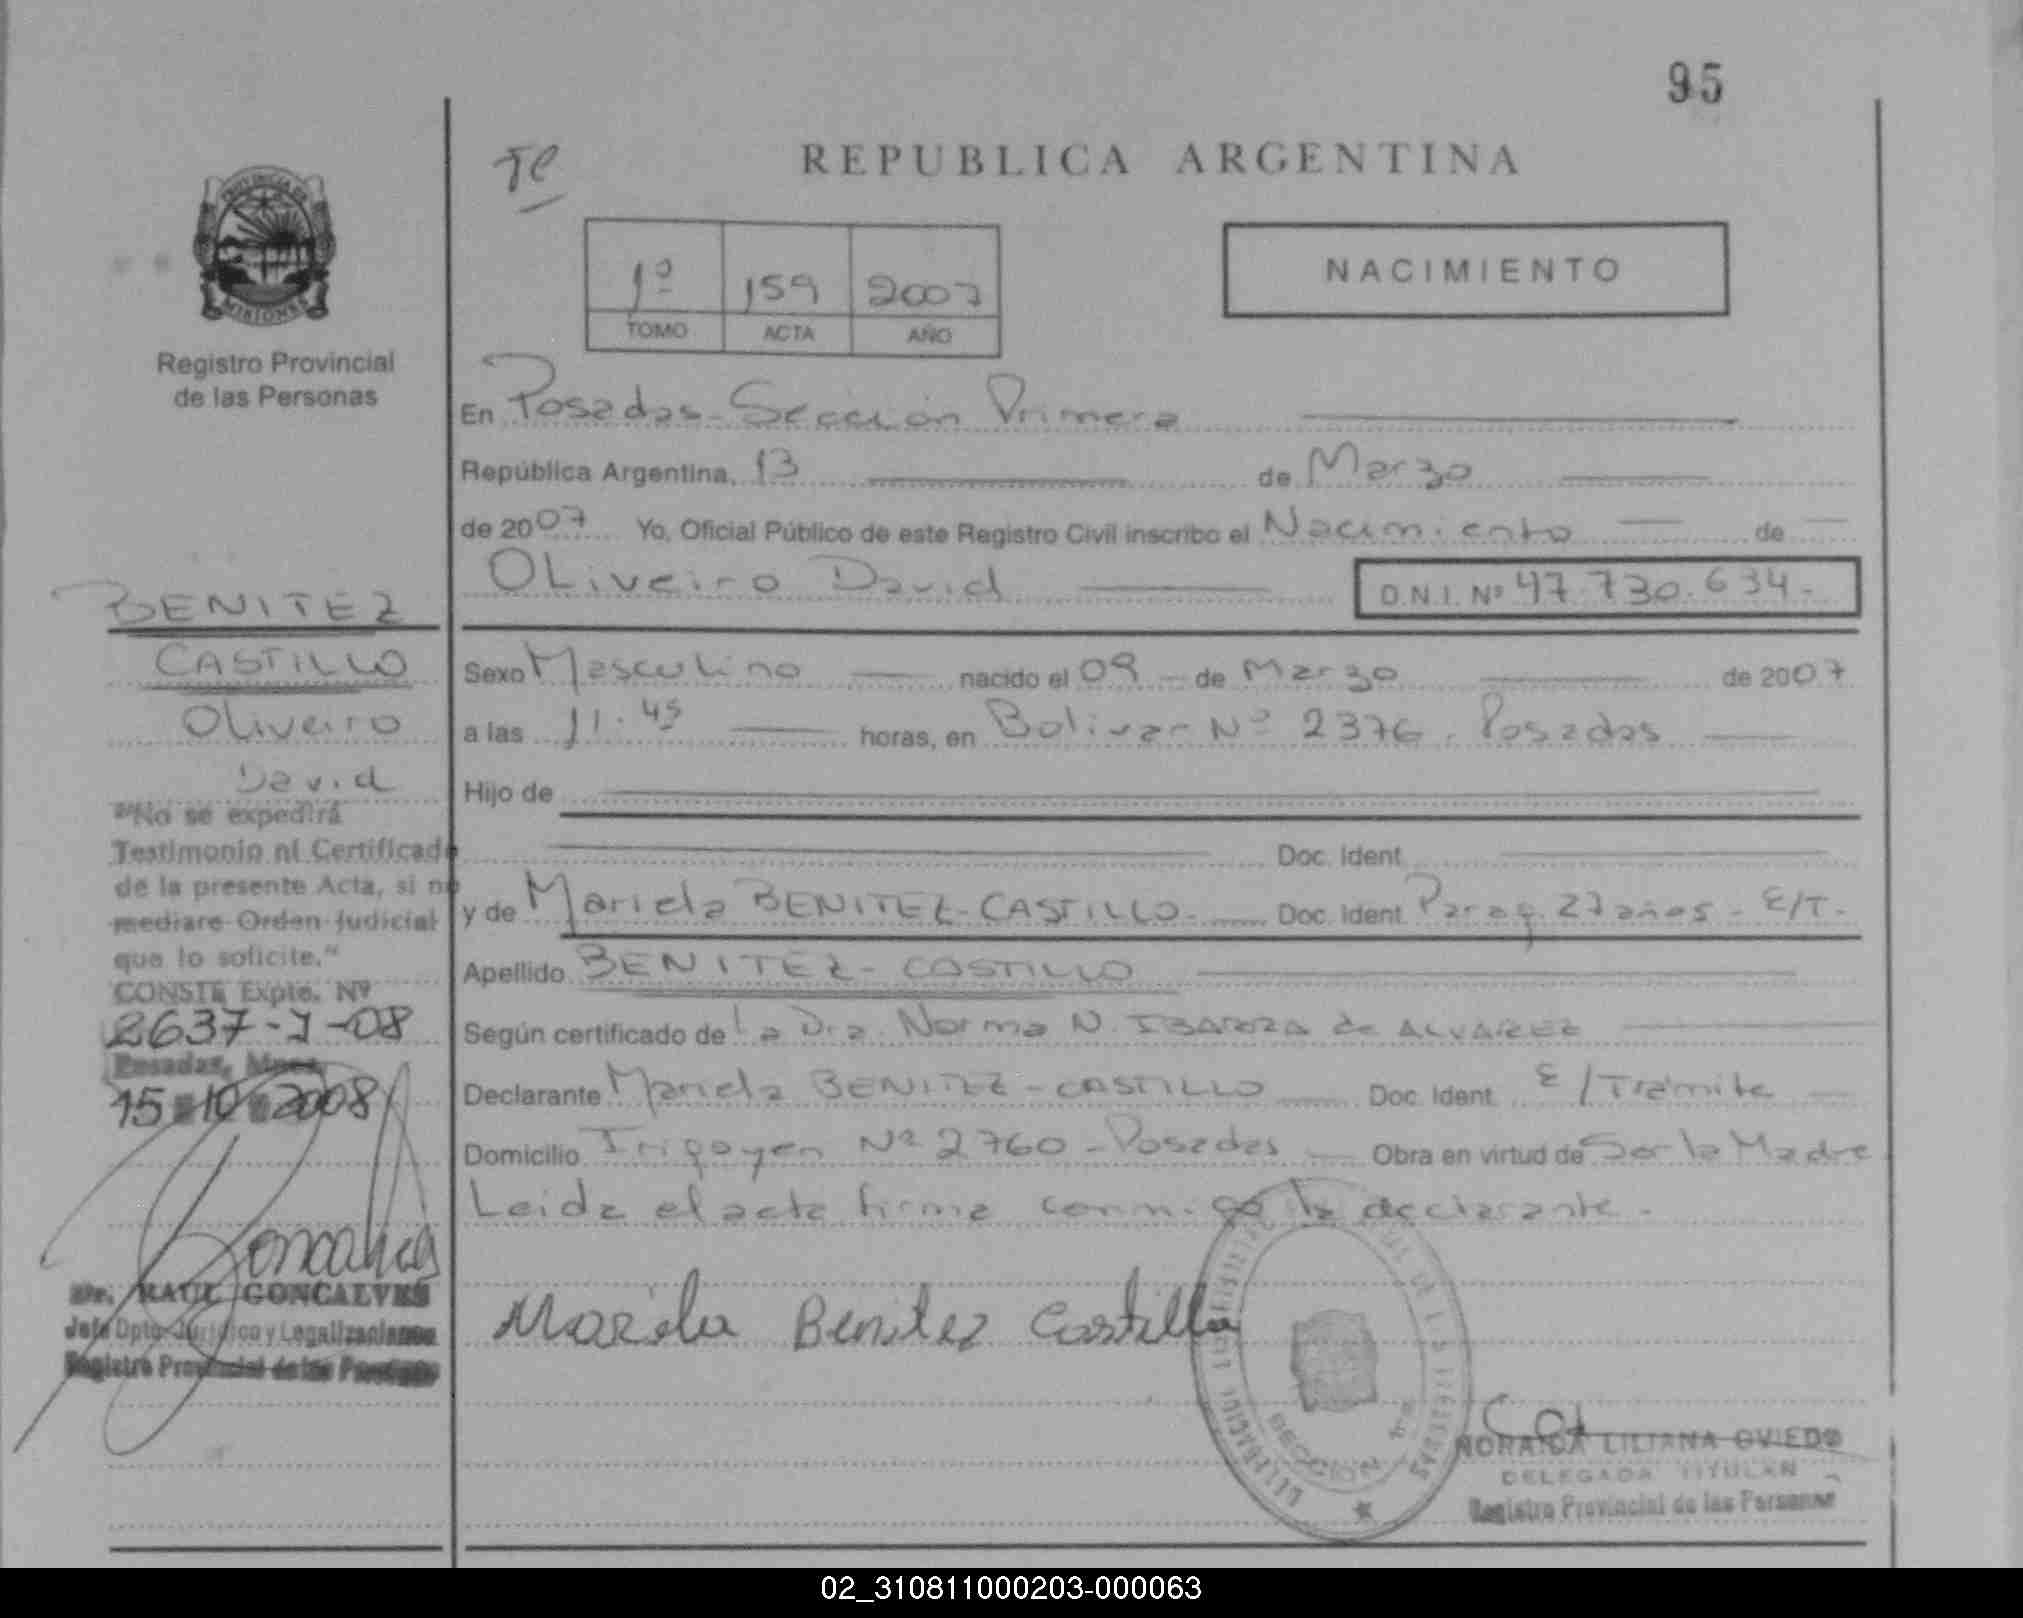 95
REPUBLICA ARGENTINA
PROVINCIA DE
MISIONES
Registro Provincial
de las Personas
1º 159 2007
TOMO ACTA AÑO
NACIMIENTO
En Posadas-Sección Primera
República Argentina, 13 de Marzo
de 2007 Yo, Oficial Público de este Registro Civil inscribo el Nacimiento de
OLiveiro David D.N.I. Nº 47.730.634.-
BENITEZ
CASTILLO
OLiveiro
David
"No se expedirá
Testimonio ni Certificado
de la presente Acta, si no
mediare Orden Judicial
que lo solicite."
CONSTE Expte. Nº
2637-J-08
Posadas, Mnes.
15 10 2008
Goncalves
Dr. RAUL GONCALVES
Jefe Dpto. Jurídico y Legalizaciones
Registro Provincial de las Personas
Sexo Masculino nacido el 09 de Marzo de 2007
a las 11.45 horas, en Bolivar Nº 2376. Posadas
Hijo de
Doc. Ident.
y de Mariela BENITEZ-CASTILLO- Doc. Ident. Parag. 27 años - E/T.
Apellido BENITEZ-CASTILLO
Según certificado de La Dra. Norma N. IBARRA de ALVAREZ
Declarante Mariela BENITEZ-CASTILLO Doc. Ident. E/Trámite
Domicilio Irigoyen Nº 2760-Posadas Obra en virtud de Ser la Madre
Leida el acta firma conmigo la declarante.
Mariela Benitez Castillo
SECCION
NORAIDA LILIANA OVIEDO
DELEGADA TITULAR
Registro Provincial de las Personas
02_310811000203-000063